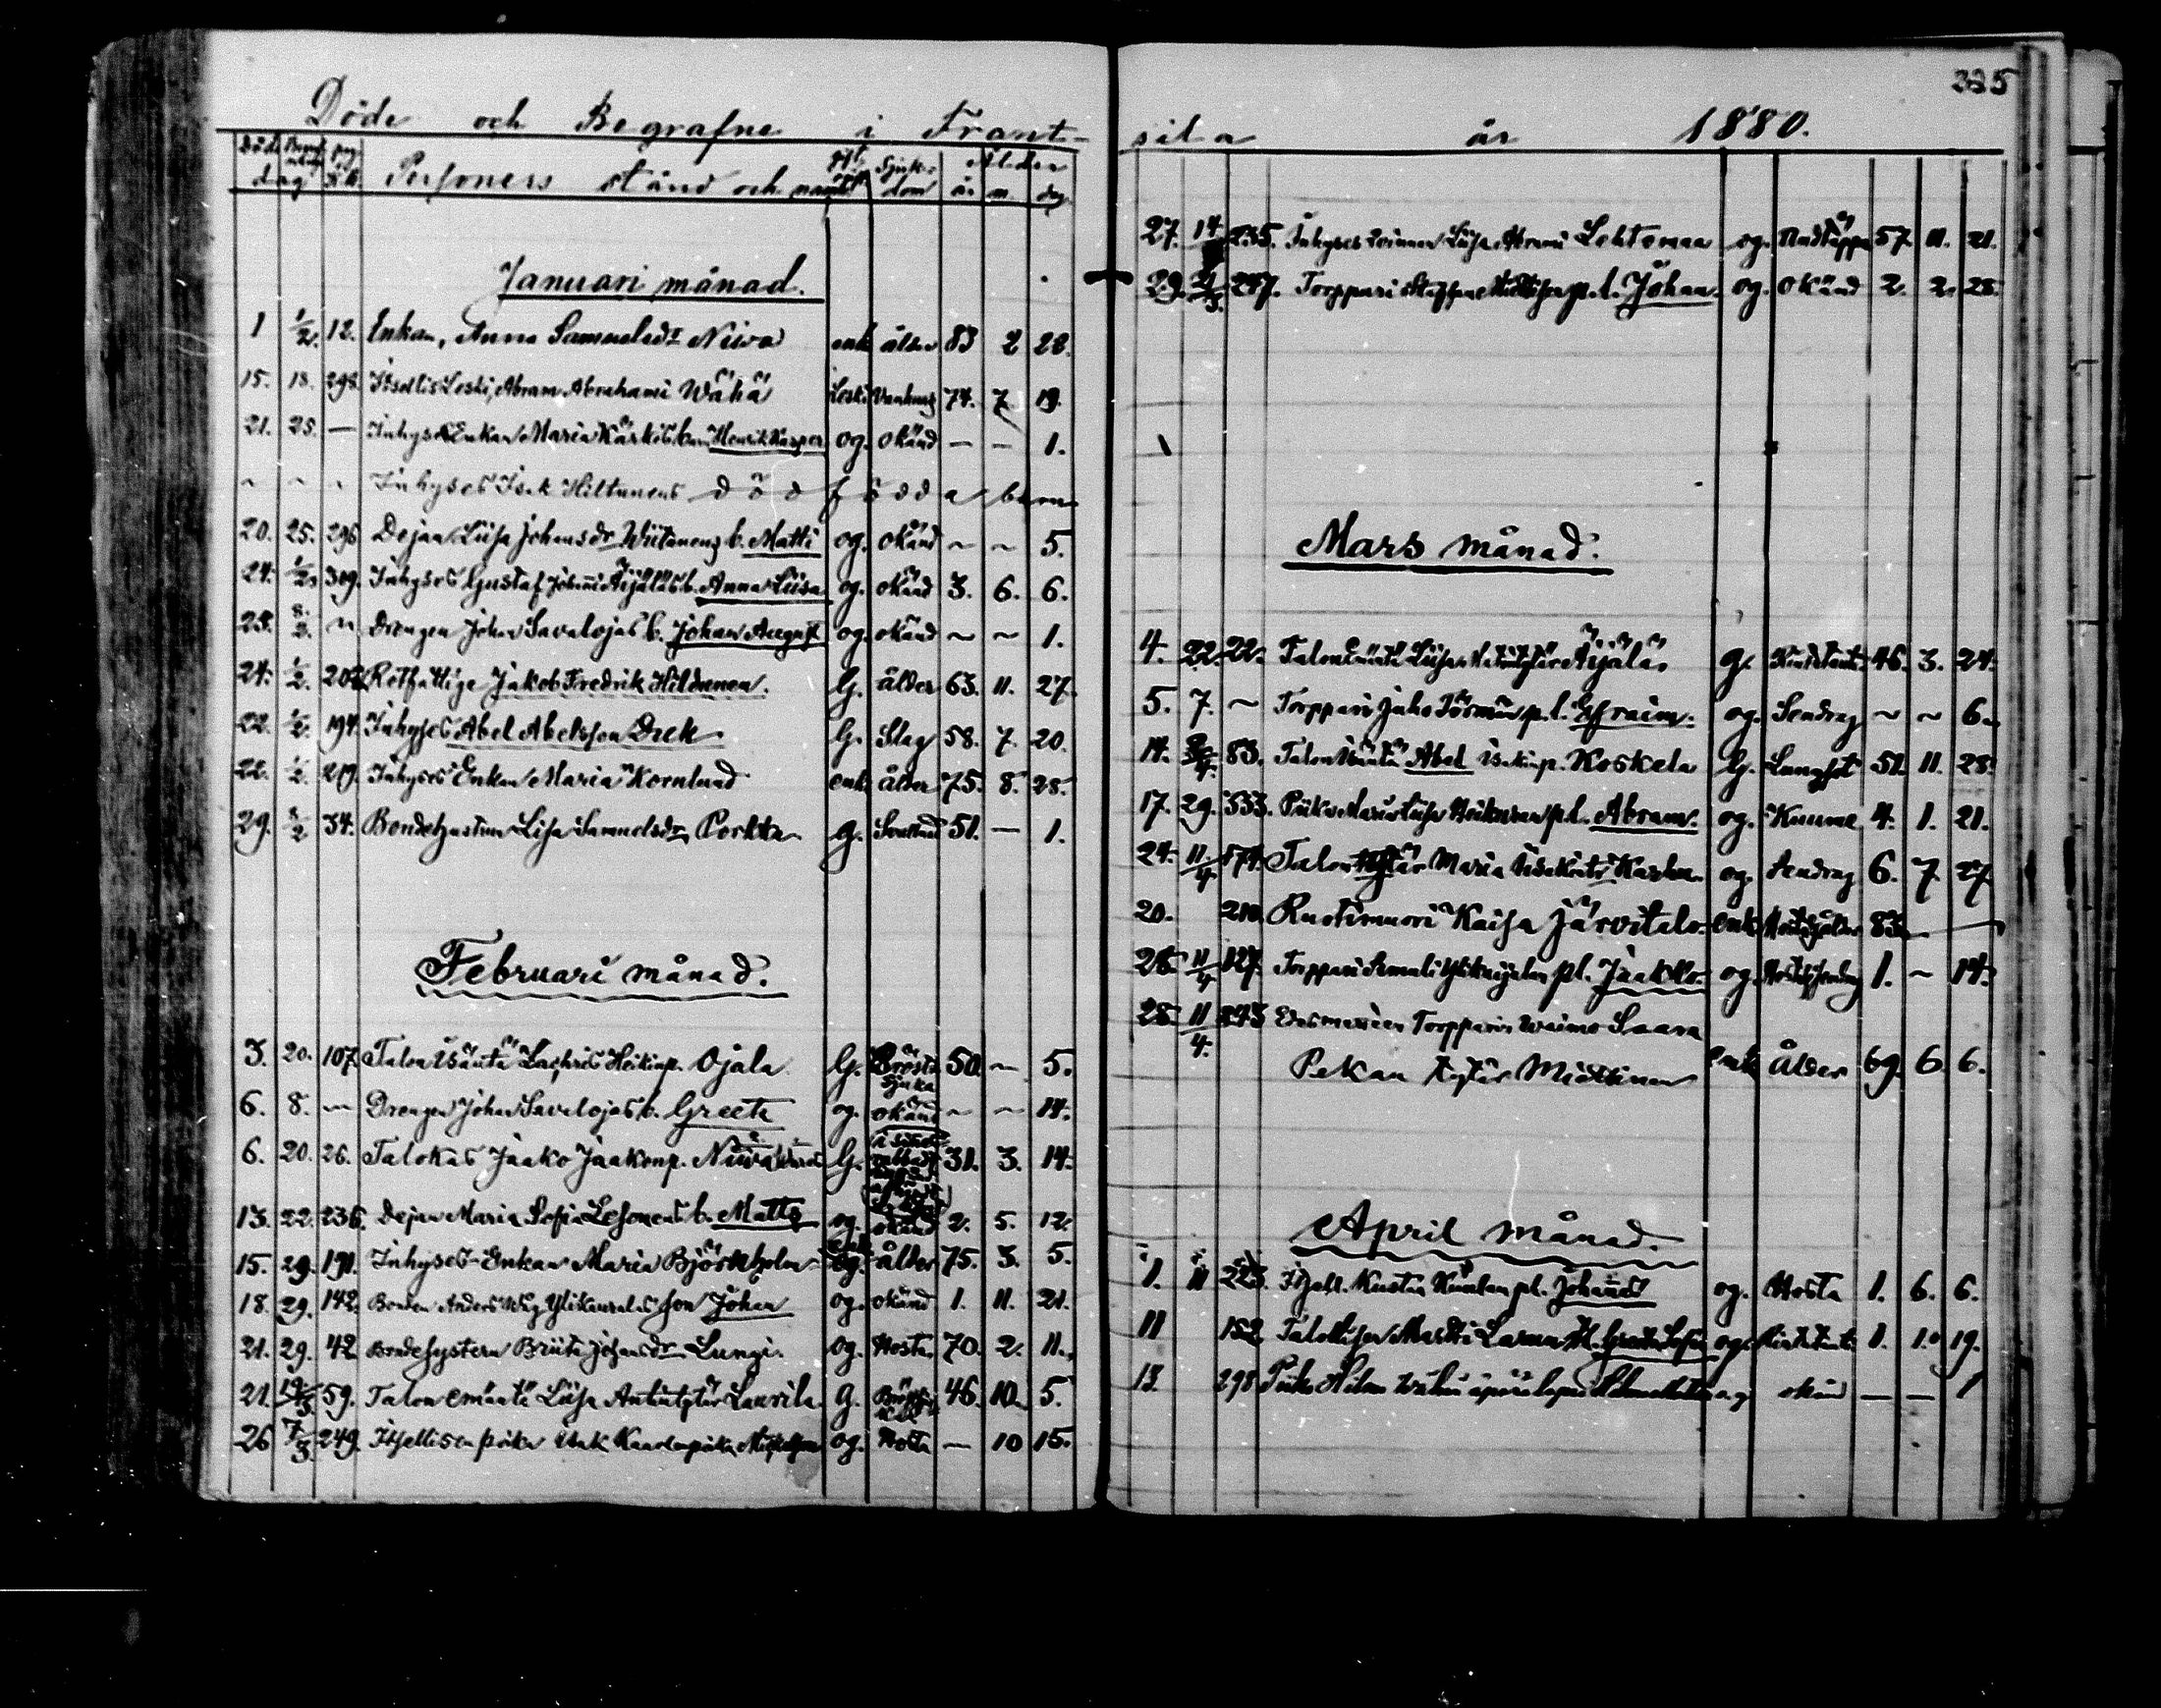 Döde och Begrafne i Frant-
Död Begraf pag
dag
Personers stånd och namn Sjuk-dom Ålder
år m. dag
Januari månad.
1 1/2. 12. Enkan, Anna Samuelsdr Niwa enk ålder 83 2 28.
15. 18. 298. Leski, Abram Abrahami Wähä Leski 74. 7. 19.
21. 25. — Inhyses Enkan Maria Kärkis barn Henrik Kasper og. okänd — — 1.
~ ~ ~ Inhyses Isak Hiltunens dödfödda barn
20. 25. 296 Dejan Liisa Johansdr Wiitanens b. Matti og. okänd ~ ~ 5.
24. 1/2. 309. Inhyses Gustaf Äijäläs b. Anna Liisa og. okänd 3. 6. 6.
23. 8./2. ~ Drengen Johan Savalojas b. Johan August og. okänd ~ ~ 1.
24. 1/2. 202 Rotfattige Jakob Fredrik Hildunen. G. ålder 63. 11. 27.
22. 1/2. 194. Inhyses Abel Abelsson Drek G. Slag 58. 7. 20.
22. 1/2. 219. Inhyses Enkan Maria Kornlund enk ålder 75. 8. 28.
29. 8/2 34. Bondehustrun Lisa Samuelsdr Porkka g. 51. — 1.
Februari månad.
3. 20. 107. Talon Isäntä Heikinp. Ojala G. Bröst sjuka 50. ~ 5.
6. 8. ~ Drengen Johan Savalojas b. Greeta og. okänd ~ ~ 14.
6. 20. 26. Talokas Jaako Jaakonp. Niiwa G. 31. 3. 14.
13. 22. 236. Dejan Maria Sofia Lesonens b. Matts og. okänd 2. 5. 12.
15. 29. 191. Inhyses-Enkan Maria Björkholm ålder 75. 3. 5.
18. 29. 142. Bonden Anders son Johan og. okänd 1. 11. 21.
21. 29. 42 Bondesystern Briita Johansdr Lungi. og. Hosta. 70. 2. 11.
21. 14/3. 59. Talon emäntä Liisa Antintytär Laurila. g. 46. 10. 5.
26 7/3. 249. Itsellisen poika Isak og. Hosta — 10 15.
325
sila år 1880.
27. 14 235. Inhyses qvinnan Liisa Abrami Lehtomaa og. Andtäppa 57. 11. 21.
29. 21/3. 247. Torppari p.l. Johan. og. okänd 2. 2. 28.
Mars månad.
4. 22. 22. Talon Emäntä Liisa Äijälä. g. 46. 3. 24.
5. 7. ~ Torppari Juho p.l. Efraim. og. Sendrag ~ ~ 6.
14. 83. Talon Isäntä Abel Isakinp. Koskela G. Lungsot 51. 11. 28.
17. 29. 333. Piika Maria Liisa p.l. Abram. og. Kuume 4. 1. 21.
24. 11/4. 174. Talon tytär Maria Karhu. og. Sendrag 6. 7. 27.
20. 210. Ruotimuori Kaisa Järvitalo. enk 83
26. 11/4 127. Torppari p.l. Jaakko. og. 1. ~ 14.
28. 11/4. 273 Torpparin waimo Saara
Pekan tytär Miettinen enk Ålder 69. 6 6.
April månad.
1. 11 223. Itsell. Kustaa p.l. Johannes og. Hosta 1. 6. 6.
11 152 Martti og. 1. 1. 19.
13. 298 Piika Hilma og okänd — — 1